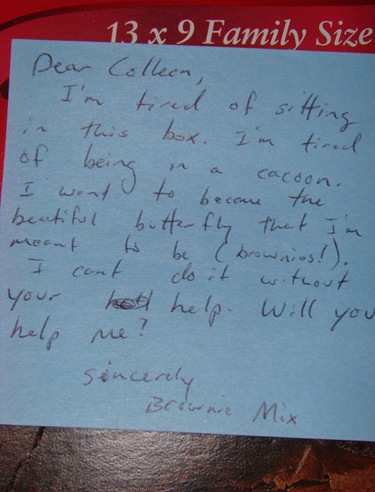 13 x 9 Family Size
Dear Colleen,
I'm tired of sitting
in this box. I'm tired
of being in a cacoon.
I want to become the
beatiful butterfly that I'm
meant to be (brownies!).
I cant do it without
your help. Will you
help me?
sincerely
Brownie Mix